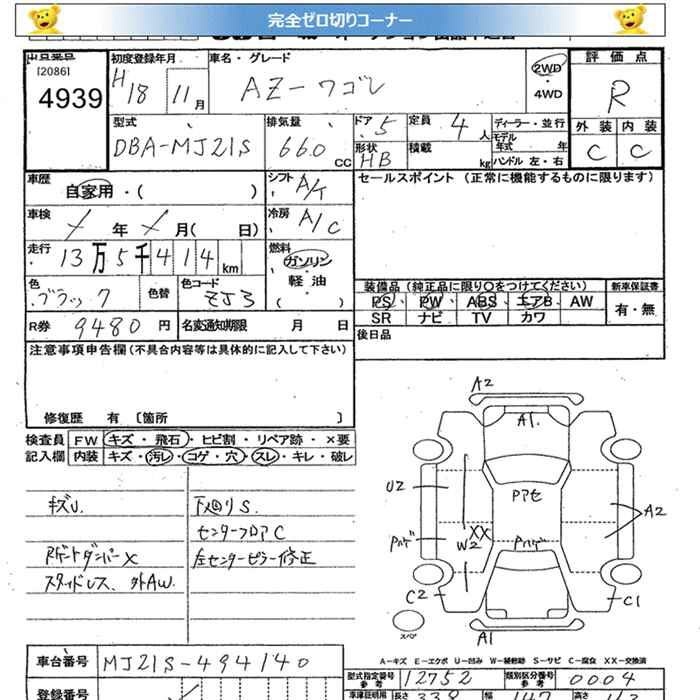 完全ゼロ切りコーナー
出品番号 [2086] 4939
初度登録年月 H18 11月
車名・グレード AZ-ワゴン
2WD・4WD
評価点 R
外装 C 内装 C
型式 DBA-MJ21S
排気量 660 CC
ドア 5 形状 HB
定員 4人 積載 kg
ディーラー・並行 モデル年式 年 ハンドル 左・右
車歴 自家用・( )
シフト A/T
セールスポイント (正常に機能するものに限ります)
車検 / 年 / 月( 日)
冷房 A/C
走行 13万5千414km
燃料 ガソリン 軽油 ( )
色 ブラック 色替 色コード ZJ3
装備品 (純正品に限り○をつけてください) 新車保証書
PS PW ABS エアB AW 有・無
SR ナビ TV カワ
R券 9480円 名変通知期限 月 日
後日品
注意事項申告欄 (不具合内容等は具体的に記入して下さい)
修復歴 有 〔箇所 〕
検査員 FW キズ・飛石・ヒビ割・リペア跡・×要
記入欄 内装 キズ・汚レ・コゲ・穴・スレ・キレ・破レ
キズU.
Rゲートダンパー×
スタッドレス、外AW.
下廻りS.
センターフロアC
左センターピラー修正
A2
A1.
U2
Pアセ
A2
Pハゲ
W2
XX
Pハゲ
C2
C1
スペア
A1
A-キズ E-エクボ U-凹み W-補修跡 S-サビ C-腐食 XX-交換済
車台番号 MJ21S-494140
型式指定番号 参考 12752 類別区分番号 参考 0004
登録番号
車検証明用 参考 長さ 339 幅 147 高さ